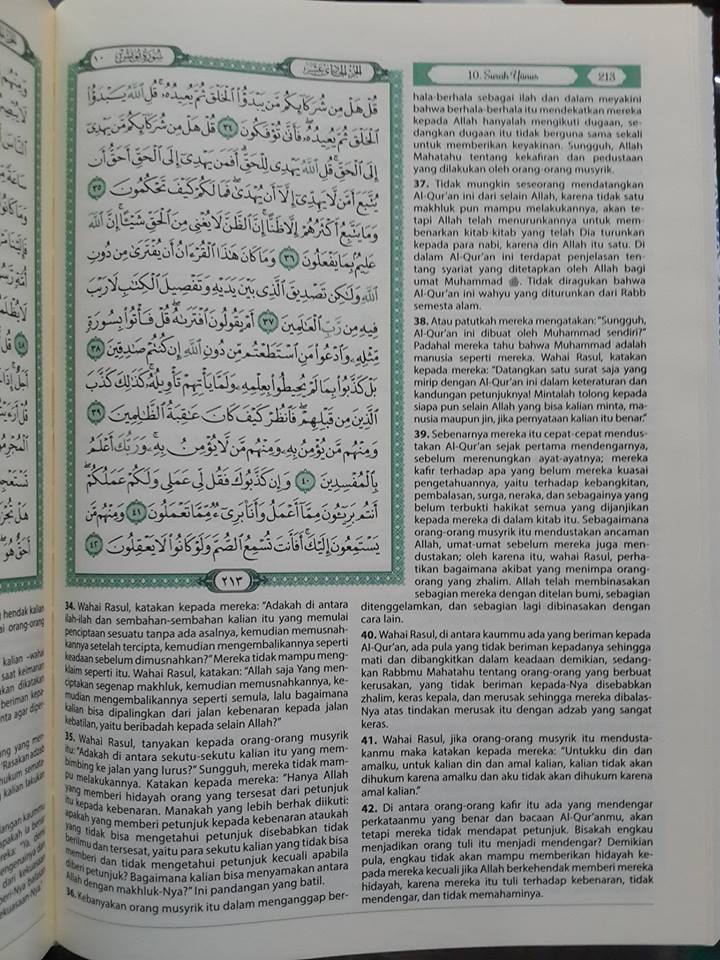 ١٠ سُورَةُ يُونُسَ
الجُزْءُ الحَادِي عَشَرَ
قُلْ هَلْ مِن شُرَكَآئِكُم مَّن يَبْدَؤُا۟ ٱلْخَلْقَ ثُمَّ يُعِيدُهُۥ ۚ قُلِ ٱللَّهُ يَبْدَؤُا۟
ٱلْخَلْقَ ثُمَّ يُعِيدُهُۥ ۖ فَأَنَّىٰ تُؤْفَكُونَ ٣٤ قُلْ هَلْ مِن شُرَكَآئِكُم مَّن يَهْدِىٓ
إِلَى ٱلْحَقِّ ۚ قُلِ ٱللَّهُ يَهْدِى لِلْحَقِّ ۗ أَفَمَن يَهْدِىٓ إِلَى ٱلْحَقِّ أَحَقُّ أَن
يُتَّبَعَ أَمَّن لَّا يَهِدِّىٓ إِلَّآ أَن يُهْدَىٰ ۖ فَمَا لَكُمْ كَيْفَ تَحْكُمُونَ ٣٥
وَمَا يَتَّبِعُ أَكْثَرُهُمْ إِلَّا ظَنًّا ۚ إِنَّ ٱلظَّنَّ لَا يُغْنِى مِنَ ٱلْحَقِّ شَيْـًٔا ۚ إِنَّ ٱللَّهَ
عَلِيمٌۢ بِمَا يَفْعَلُونَ ٣٦ وَمَا كَانَ هَٰذَا ٱلْقُرْءَانُ أَن يُفْتَرَىٰ مِن دُونِ
ٱللَّهِ وَلَٰكِن تَصْدِيقَ ٱلَّذِى بَيْنَ يَدَيْهِ وَتَفْصِيلَ ٱلْكِتَٰبِ لَا رَيْبَ
فِيهِ مِن رَّبِّ ٱلْعَٰلَمِينَ ٣٧ أَمْ يَقُولُونَ ٱفْتَرَىٰهُ ۖ قُلْ فَأْتُوا۟ بِسُورَةٍ
مِّثْلِهِۦ وَٱدْعُوا۟ مَنِ ٱسْتَطَعْتُم مِّن دُونِ ٱللَّهِ إِن كُنتُمْ صَٰدِقِينَ ٣٨
بَلْ كَذَّبُوا۟ بِمَا لَمْ يُحِيطُوا۟ بِعِلْمِهِۦ وَلَمَّا يَأْتِهِمْ تَأْوِيلُهُۥ ۚ كَذَٰلِكَ كَذَّبَ
ٱلَّذِينَ مِن قَبْلِهِمْ ۖ فَٱنظُرْ كَيْفَ كَانَ عَٰقِبَةُ ٱلظَّٰلِمِينَ ٣٩
وَمِنْهُم مَّن يُؤْمِنُ بِهِۦ وَمِنْهُم مَّن لَّا يُؤْمِنُ بِهِۦ ۚ وَرَبُّكَ أَعْلَمُ
بِٱلْمُفْسِدِينَ ٤٠ وَإِن كَذَّبُوكَ فَقُل لِّى عَمَلِى وَلَكُمْ عَمَلُكُمْ ۖ
أَنتُم بَرِيٓـُٔونَ مِمَّآ أَعْمَلُ وَأَنَا۠ بَرِىٓءٌ مِّمَّا تَعْمَلُونَ ٤١ وَمِنْهُم مَّن
يَسْتَمِعُونَ إِلَيْكَ ۚ أَفَأَنتَ تُسْمِعُ ٱلصُّمَّ وَلَوْ كَانُوا۟ لَا يَعْقِلُونَ ٤٢
٢١٣
34. Wahai Rasul, katakan kepada mereka: "Adakah di antara
ilah-ilah dan sembahan-sembahan kalian itu yang memulai
penciptaan sesuatu tanpa ada asalnya, kemudian memusnah-
kannya setelah tercipta, kemudian mengembalikannya seperti
keadaan sebelum dimusnahkan?" Mereka tidak mampu meng-
klaim seperti itu. Wahai Rasul, katakan: "Allah saja Yang men-
ciptakan segenap makhluk, kemudian memusnahkannya, ke-
mudian mengembalikannya seperti semula, lalu bagaimana
kalian bisa dipalingkan dari jalan kebenaran kepada jalan
kebatilan, yaitu beribadah kepada selain Allah?"
35. Wahai Rasul, tanyakan kepada orang-orang musyrik
itu: "Adakah di antara sekutu-sekutu kalian itu yang mem-
bimbing ke jalan yang lurus?" Sungguh, mereka tidak mam-
pu melakukannya. Katakan kepada mereka: "Hanya Allah
yang memberi hidayah orang yang tersesat dari petunjuk
itu kepada kebenaran. Manakah yang lebih berhak diikuti:
apakah yang memberi petunjuk kepada kebenaran ataukah
yang tidak bisa mengetahui petunjuk disebabkan tidak
berilmu dan tersesat, yaitu para sekutu kalian yang tidak bisa
memberi dan tidak mengetahui petunjuk kecuali apabila
diberi petunjuk? Bagaimana kalian bisa menyamakan antara
Allah dengan makhluk-Nya?" Ini pandangan yang batil.
36. Kebanyakan orang musyrik itu dalam menganggap ber-
10. Surah Yûnus 213
hala-berhala sebagai ilah dan dalam meyakini
bahwa berhala-berhala itu mendekatkan mereka
kepada Allah hanyalah mengikuti dugaan, se-
dangkan dugaan itu tidak berguna sama sekali
untuk memberikan keyakinan. Sungguh, Allah
Mahatahu tentang kekafiran dan pedustaan
yang dilakukan oleh orang-orang musyrik.
37. Tidak mungkin seseorang mendatangkan
Al-Qur'an ini dari selain Allah, karena tidak satu
makhluk pun mampu melakukannya, akan te-
tapi Allah telah menurunkannya untuk mem-
benarkan kitab-kitab yang telah Dia turunkan
kepada para nabi, karena din Allah itu satu. Di
dalam Al-Qur'an ini terdapat penjelasan ten-
tang syariat yang ditetapkan oleh Allah bagi
umat Muhammad ﷺ. Tidak diragukan bahwa
Al-Qur'an ini wahyu yang diturunkan dari Rabb
semesta alam.
38. Atau patutkah mereka mengatakan: "Sungguh,
Al-Qur'an ini dibuat oleh Muhammad sendiri?"
Padahal mereka tahu bahwa Muhammad adalah
manusia seperti mereka. Wahai Rasul, katakan
kepada mereka: "Datangkan satu surat saja yang
mirip dengan Al-Qur'an ini dalam keteraturan dan
kandungan petunjuknya! Mintalah tolong kepada
siapa pun selain Allah yang bisa kalian minta, ma-
nusia maupun jin, jika pernyataan kalian itu benar."
39. Sebenarnya mereka itu cepat-cepat mendus-
takan Al-Qur'an sejak pertama mendengarnya,
sebelum merenungkan ayat-ayatnya; mereka
kafir terhadap apa yang belum mereka kuasai
pengetahuannya, yaitu terhadap kebangkitan,
pembalasan, surga, neraka, dan sebagainya yang
belum terbukti hakikat semua yang dijanjikan
kepada mereka di dalam kitab itu. Sebagaimana
orang-orang musyrik itu mendustakan ancaman
Allah, umat-umat sebelum mereka juga men-
dustakan; oleh karena itu, wahai Rasul, perha-
tikan bagaimana akibat yang menimpa orang-
orang yang zhalim. Allah telah membinasakan
sebagian mereka dengan ditelan bumi, sebagian
ditenggelamkan, dan sebagian lagi dibinasakan dengan
cara lain.
40. Wahai Rasul, di antara kaummu ada yang beriman kepada
Al-Qur'an, ada pula yang tidak beriman kepadanya sehingga
mati dan dibangkitkan dalam keadaan demikian, sedang-
kan Rabbmu Mahatahu tentang orang-orang yang berbuat
kerusakan, yang tidak beriman kepada-Nya disebabkan
zhalim, keras kepala, dan merusak sehingga mereka dibalas-
Nya atas tindakan merusak itu dengan adzab yang sangat
keras.
41. Wahai Rasul, jika orang-orang musyrik itu mendusta-
kanmu maka katakan kepada mereka: "Untukku din dan
amalku, untuk kalian din dan amal kalian, kalian tidak akan
dihukum karena amalku dan aku tidak akan dihukum karena
amal kalian."
42. Di antara orang-orang kafir itu ada yang mendengar
perkataanmu yang benar dan bacaan Al-Qur'anmu, akan
tetapi mereka tidak mendapat petunjuk. Bisakah engkau
menjadikan orang tuli itu menjadi mendengar? Demikian
pula, engkau tidak akan mampu memberikan hidayah ke-
pada mereka kecuali jika Allah berkehendak memberi mereka
hidayah, karena mereka itu tuli terhadap kebenaran, tidak
mendengar, dan tidak memahaminya.